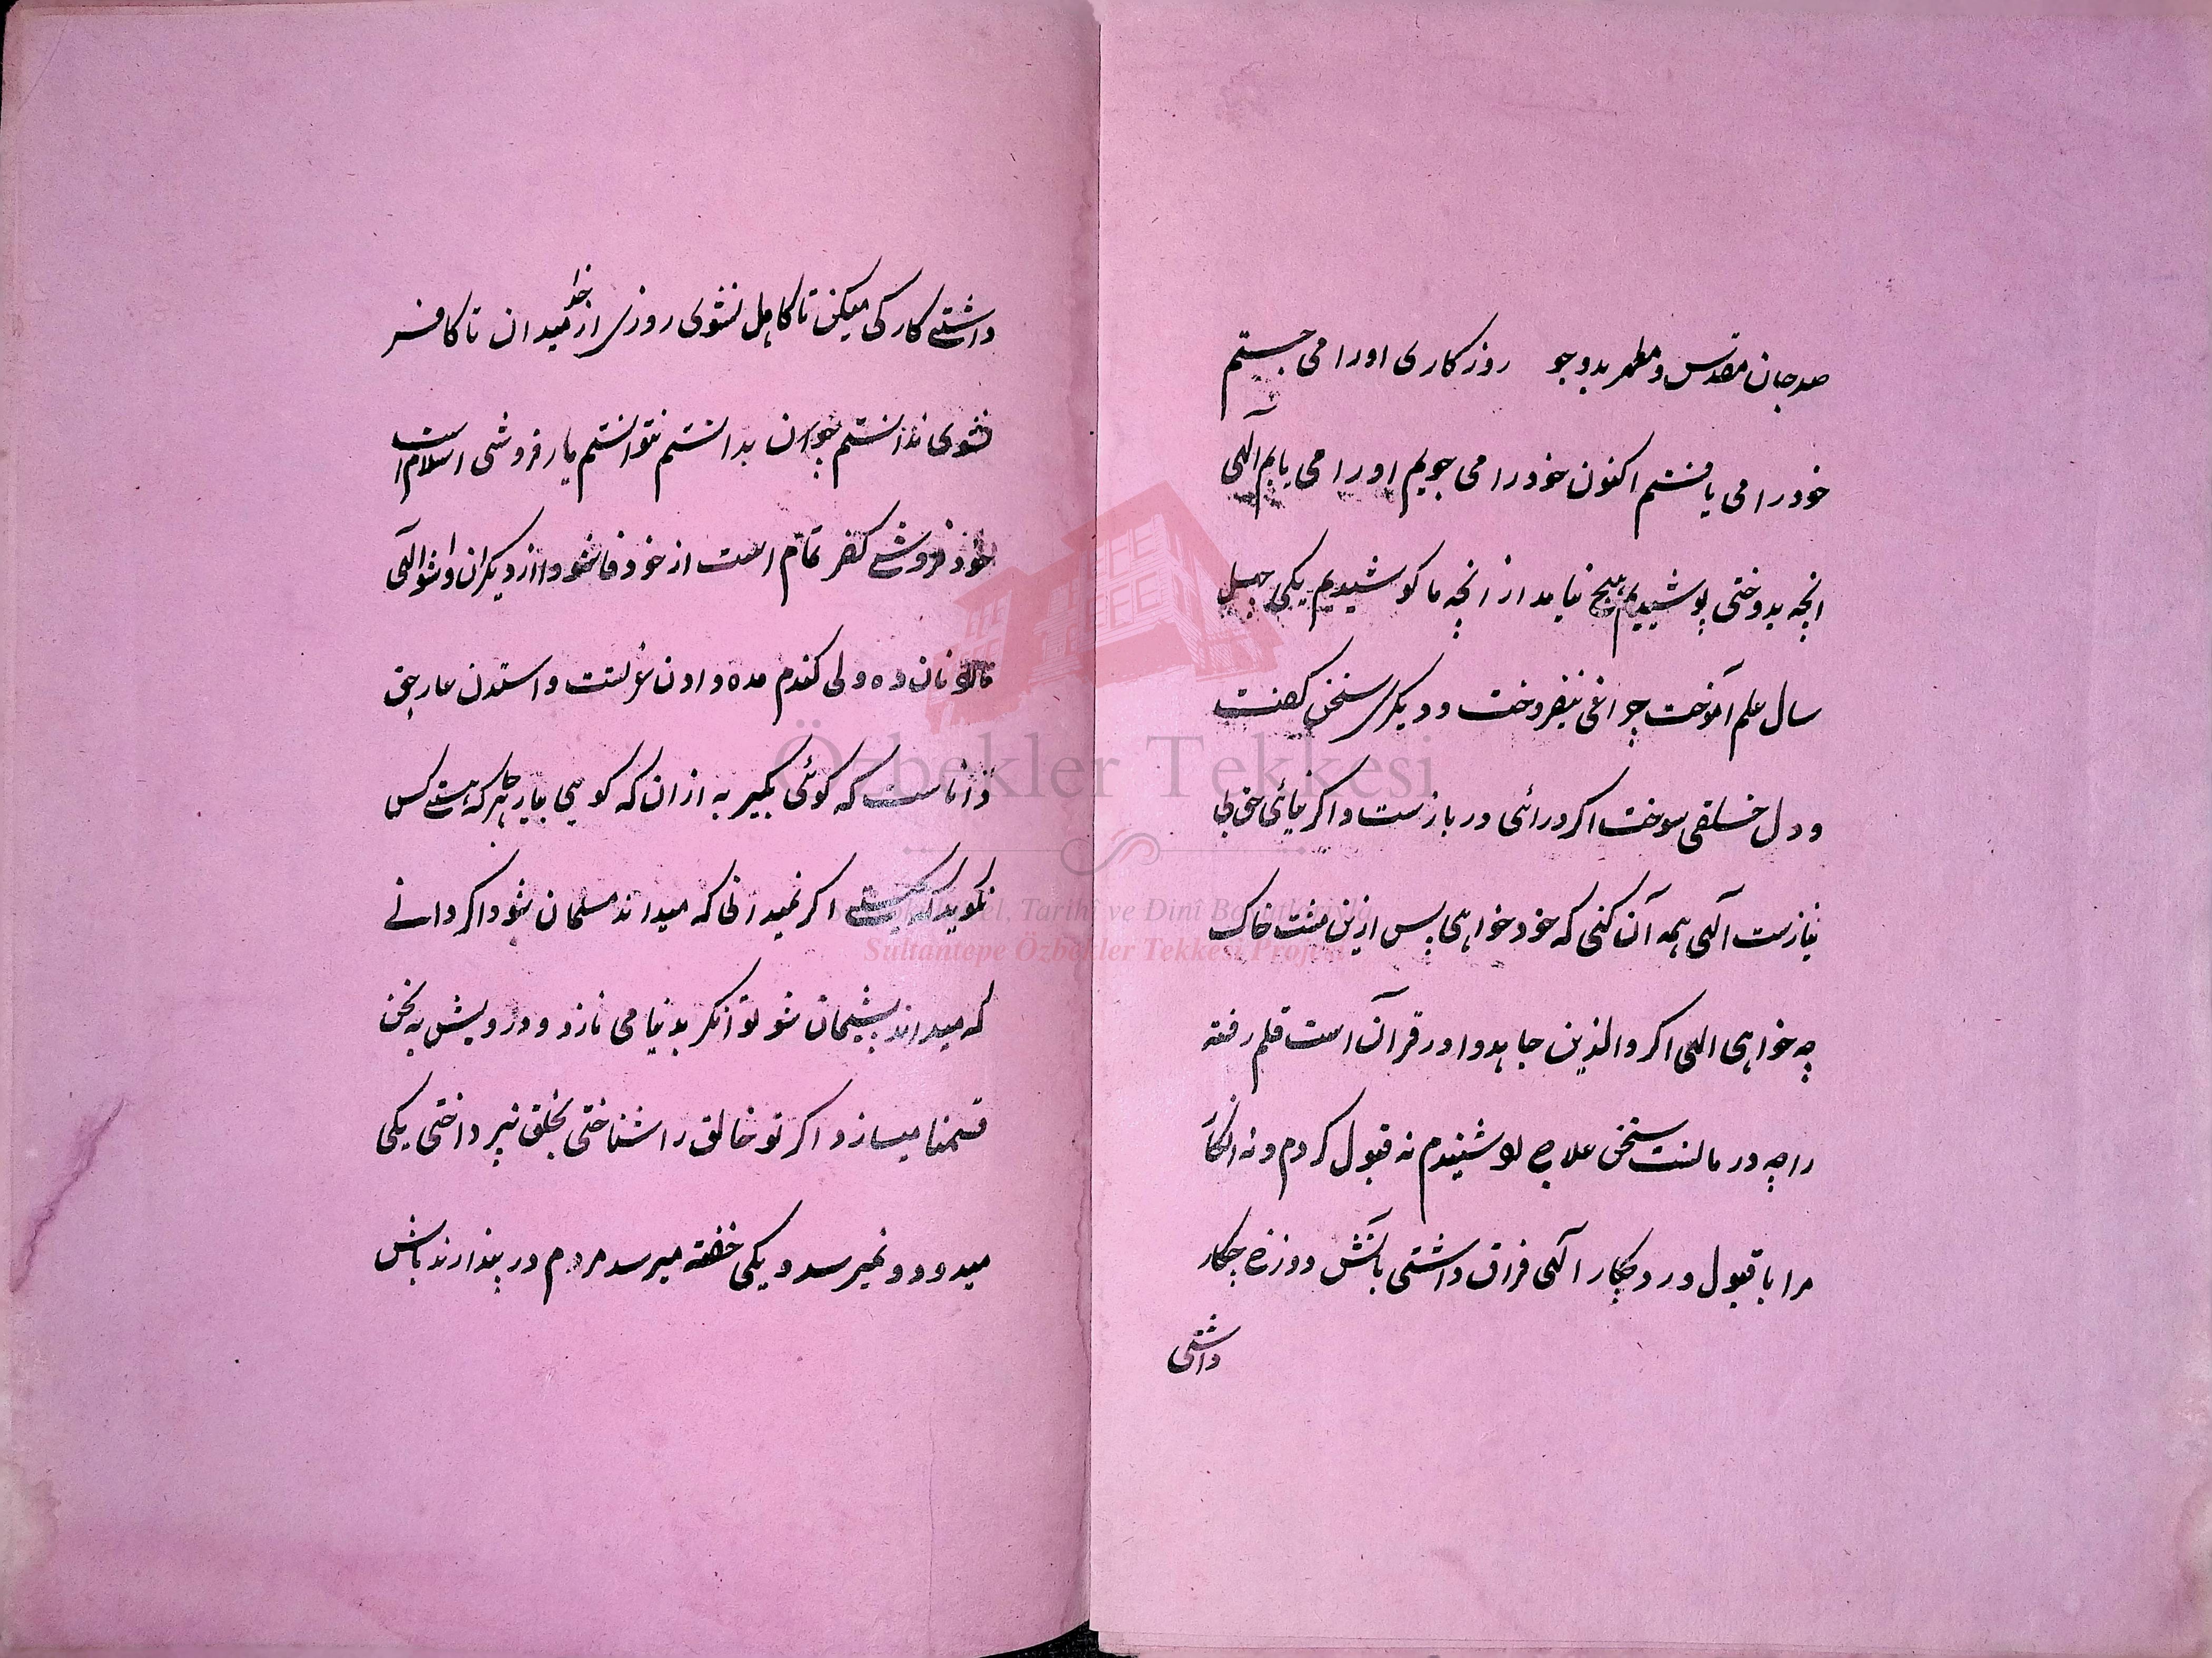 صد جان مقدس و مطهر بدو جو روزکاری اورا می جستم
خودرا می یافتم اکنون خودرا می جویم اورا می یابم آلهی
انچه بدوختی پوشیدیم هیچ نیامد از انچه ما کوشیدیم یکی چهل
سال علم آموخت چراغی نیفروخت و دیکری سخن کفت
و دل خلقی سوخت اکر درائی در بازست و اکر نیائی حق بی
نیازست آلهی همه آن کنی که خود خواهی پس ازین مشت خاک
چه خواهی الهی اکر والذین جاهدوا در قرآن است قلم رفته
را چه درمانست سخن علاج لو شنیدم نه قبول کردم و نه انکار
مرا با قبول و رد چکار آلهی فراق داشتی باتش دوزخ چکار
داشتی
داشتی کارکی میکن تا کاهل نشوی روزی از خدا میدان تا کافر
نشوی ندانستم چو بدانستم نتوانستم یار فروشی اسلام است
خودفروشی کفر تمام است از خود فاشو و از دیکران واشو آلهی
نان ده ولی کندم مده دادن عزلست و استدن عار حق
دانا ست که کوئی بکیر به ازان که کویی بیار هر که هستی کس
نکوید که کیستی اکر نمیدانی که میداند مسلمان شو و اکر دانی
که میداند پشیمان شو توانکر بدنیا می نازد و درویش به نحن
قسمنا میسازد اکر تو خالق را شناختی بخلق نپرداختی یکی
میدود و نمیرسد و یکی خفته میرسد مردم در پندارند باش
Özbekler Tekkesi
Tarihî ve Dinî
Sultantepe Özbekler Tekkesi Projesi